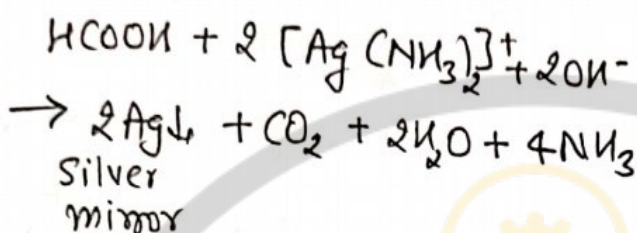 HCOOH + 2 [Ag(NH₃)₂]⁺ + 2OH⁻
→ 2Ag↓ + CO₂ + 2H₂O + 4NH₃
Silver
mirror